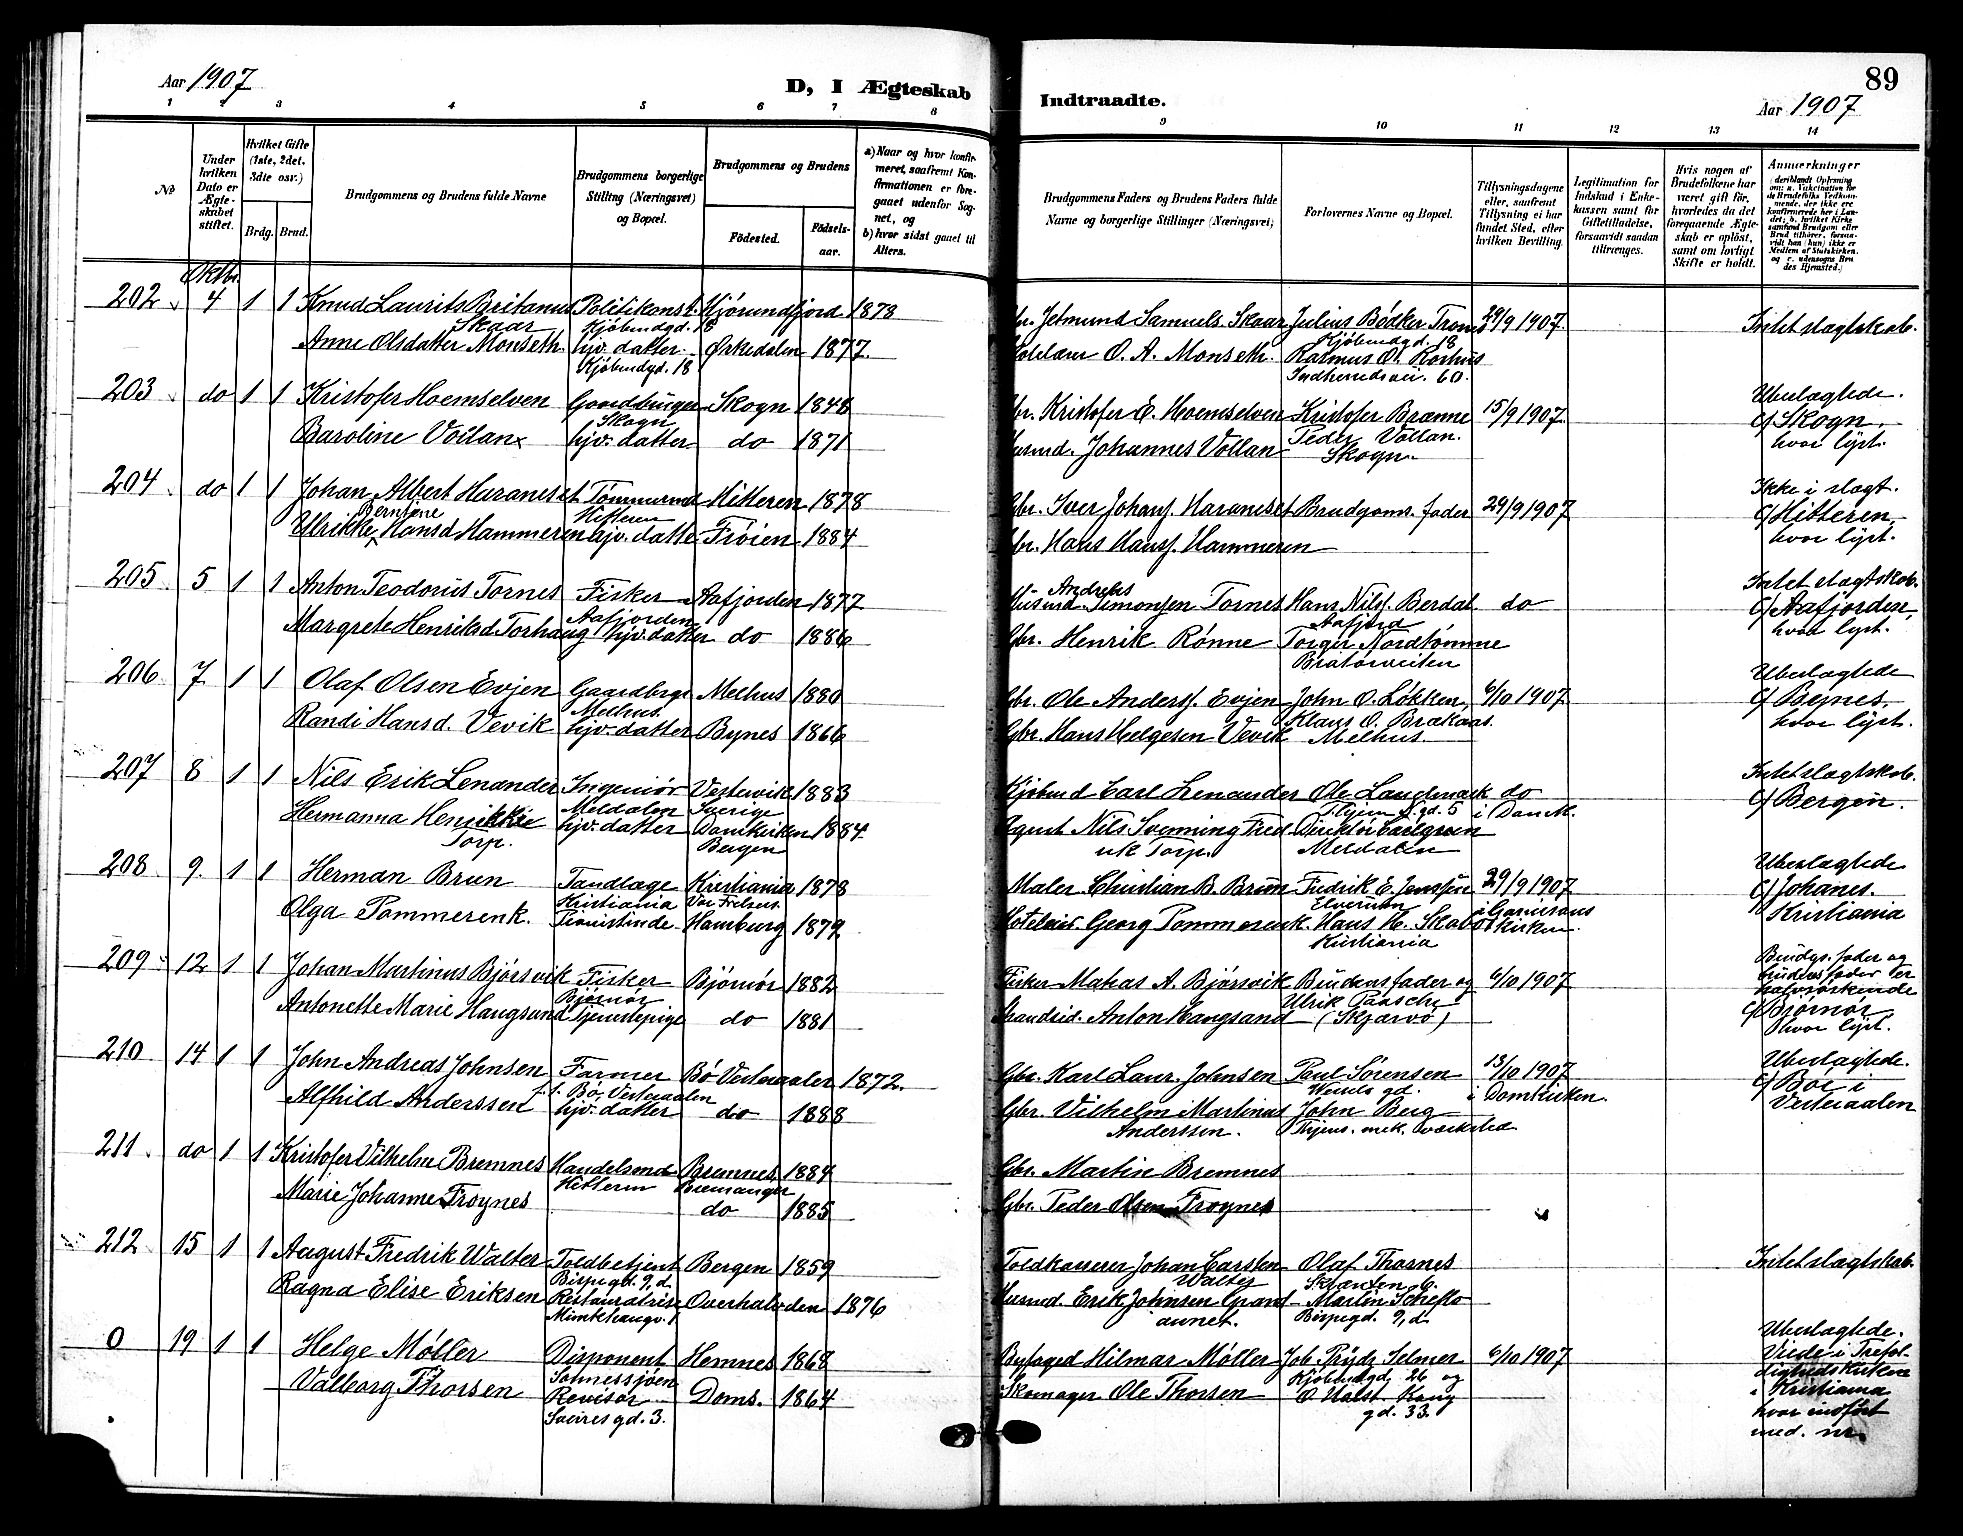 Aar 1907
D, I Ægteskab
Indtraadte.
89
Aar 1907
1 2 3 4 5 6 7 8 9 10 11 12 13 14
No
Under hvilken Dato er Ægteskabet stiftet.
Hvilket Gifte (1ste, 2det. 3die osv.)
Brdg. Brud.
Brudgommens og Brudens fulde Navne
Brudgommens borgerlige Stilling (Næringsvei) og Bopæl.
Brudgommens og Brudens
Fødested.
Fødselsaar.
a) Naar og hvor konfirmeret, saafremt Konfirmationen er foregaaet udenfor Sognet, og
b) hvor sidst gaaet til Alters.
Brudgommens Faders og Brudens Faders fulde Navne og borgerlige Stillinger (Næringsvei)
Forlovernes Navne og Bopæl.
Tillysningsdagene eller, saafremt Tillysning ei har fundet Sted, efter hvilken Bevilling.
Legitimation for Indskud i Enkekassen samt for Giftetilladelse, forsaavidt saadan tiltrænges.
Hvis nogen af Brudefolkene har været gift før, hvorledes da det foregaaende Ægteskab er opløst, samt om lovligt Skifte er holdt.
Anmerkninger (deriblandt Oplysning om: a. Vakcination for de Brudefolks Vedkommende, der ikke ere konfirmerede her i Landet; b. hvilket Kirkesamfund Brudgom eller Brud tilhører, forsaavidt han (hun) ikke er Medlem af Statskirken, og c. udensogns Brudes Hjemsted.)
Oktbr.
202 4 1 1 Knud Laurits Britanus Skaar Politikonst. Kjøbmdgd. 18 Hjørundfjord 1878 Gbr. Jetmund Samuels. Skaar Julius Bødker Trones Kjøbmdgd. 18 29/9 1907 Intet slægtskab.
Anne Olsdatter Monseth hjv. datter Kjøbmdgd. 18 Ørkedalen 1877 O. A. Monseth. Rasmus O. Korhus Indherredsvei. 60.
203 do 1 1 Kristofer Hoemselven Gaardbruger Skogn Skogn 1848 Gbr. Kristofer E. Hoemselven Kristofer Brænne 15/9 1907 Ubeslægtede. c/ Skogn, hvor lyst.
Baroline Vollan hjv. datter do 1871 Husmd. Johannes Vollan Peder Vollan. Skogn.
204 do 1 1 Johan Albert Haraneset Tømmermd Hitteren Hitteren 1878 Gbr. Iver Johans. Haraneset Brudgoms. fader 29/9 1907 Ikke i slægt. c/ Hitteren, hvor lyst.
Ulrikke Berntine Hansd Hammeren hjv. datter Frøien 1884 Gbr. Hans Hans. Hammeren
205 5 1 1 Anton Teodorius Tørnes Fisker Aafjorden Aafjorden 1877 Husmd Andreas Simonsen Tørnes Hans Nils. Berdal Aafjord do Intet slægtskab. c/ Aafjorden, hvor lyst.
Margrete Henriksd Torhaug hjv. datter do 1886 Gbr. Henrik Rønne Torger Nordtømme Bratørveiten
206 7 1 1 Olaf Olsen Evjen Gaardbrgr Melhus. Melhus 1880 Gbr. Ole Anders. Evjen John O. Løkken, 6/10 1907 Ubeslægtede c/ Bynes, hvor lyst.
Randi Hansd. Vevik hjv. datter Bynes 1866 Gbr. Hans Helgesen Vevik Klaus O. Brækaas. Melhus
207 8 1 1 Nils Erik Lenander Ingeniør Meldalen Vestervik Sverige 1883 Kjøbmd Carl Lenander Ole Landmark Thjem. S. gd. 5 do i Domk. Intet slægtskab. c/ Bergen.
Hermanna Henrikkie Torp. hjv. datter Domkirken Bergen 1884 Agent Nils Svenning Fredrik Torp. Direktør Carlgren Meldalen
208 9. 1 1 Herman Brun Tandlæge Kristiania Kristiania Vor Frelsers 1878 Maler Christian B. Brun Fredrik E. Jenssen Elverum 29/9 1907 i Garnisonskirken. Ubeslægtede c/ Johanes. Kristiania
Olga Pommerenk. Pianistinde Hamburg 1879 Hoteleier Georg Pommerenk. Hans H. Skabo Kristiania
209 12 1 1 Johan Martinus Bjørsvik Fisker Bjørnør Bjørnør 1882 Fisker Matias A. Bjørsvik Brudens fader og 6/10 1907 Brudgs. fader og brudens fader er halvsøskende c/ Bjørnør, hvor lyst.
Antonette Marie Haugsand Tjenestepige do 1881 Strandsid. Anton Haugsand Ulrik Paasche (Skjærvø)
210 14 1 1 John Andreas Johnsen Farmer f. t. Bø, Vesteraalen Bø Vesteraalen 1872. Gbr. Karl Laur. Johnsen Paul Sørensen gd. 13/10 1907 i Domkirken. Ubeslægtede. c/ Bø i Vesteraalen
Alfhild Anderssen hjv. datter do 1888 Gbr. Vilhelm Martinus Anderssen. John Berg Thjems. mek. værksted
211 do 1 1 Kristofer Vilhelm Bremnes Handelsmd Hitteren Bremnes, Bremanger 1884 Gbr. Martin Bremnes
Marie Johanne Frøynes do 1885 Gbr. Peder Olsen Frøynes
212 15 1 1 August Fredrik Walter Toldbetjent Bispegd. 9, d. Bergen 1859 Toldkasserer Johan Carsten Walter Olaf Thosnes Skrænten 6. Intet slægtskab.
Ragna Elise Eriksen Restauratrise Munkhaugv. 1 Overhalvden 1876 Husmd. Erik Johnsen Grandaunet. Martin Schefto Bispegd. 9, d.
0 19 1 1 Helge Møller Disponent Hemnes 1868 Byfoged Hilmar Møller Joh. Prydz Selmer Kjøbmdgd. 26 og 6/10 1907 Ubeslægtede. Viede i Trefoldighedskirken i Kristiania hvor indført med. nr.
Valborg Thorsen Revisor Sverresgd. 3. Doms. 1864 Skomager Ole Thorsen O. Holst Krüg gd. 33.